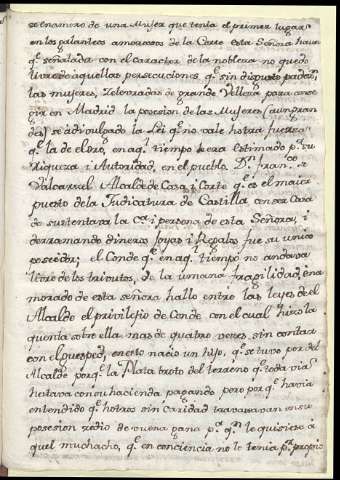 se enamoro de una Mujer que tenia el primer lugar
en los galanteos amorosos de la Corte esta Señora haun
q.e señalada con el caracter de la nobleza no quedo
livre de aquellas persecuciones q.e sin disgusto padecen
las mujeres, zeloradas de grande Velleza para conse
gir en Madrid la posesion de las Mujeres (aun gran
des) se a divulgado la Lei q.e no vale hotra fuerza
q.e la de el oro, en aq.l tiempo hera estimado p.r su
Riqueza i Autoridad, en el pueblo D.n Fran.co de
Valcarzel Alcalde de Casa, i Corte q.e es el maior
puesto de la Judicatura de Castilla con ser Casa
de sustentara la Casa i persona de esta Señora, i
derramando dineros Joyas i Regalos fue su unico
poseedor; el Conde q.e en aq.l tiempo no andava
livre de los tributos, de la umana fragilidad, ena
morado de esta señora hallo entre las leyes del
Alcalde el privilegio de Conde con el cual hizo la
quenta sobre ella mas de quatro veces sin contar
con el Guesped, en esto nacio un hijo, q.e se tuvo por del
Alcalde porq.e la Plata broto del terreno q.e todavia
heitava con su hacienda pagando pero por q.e havia
entendido q.e hotros sin Caridad travavan en su
posesion zedio de buena gana p.a q.n le quisiese a
quel muchacho, q.e en conciencia no le tenia p.r propio